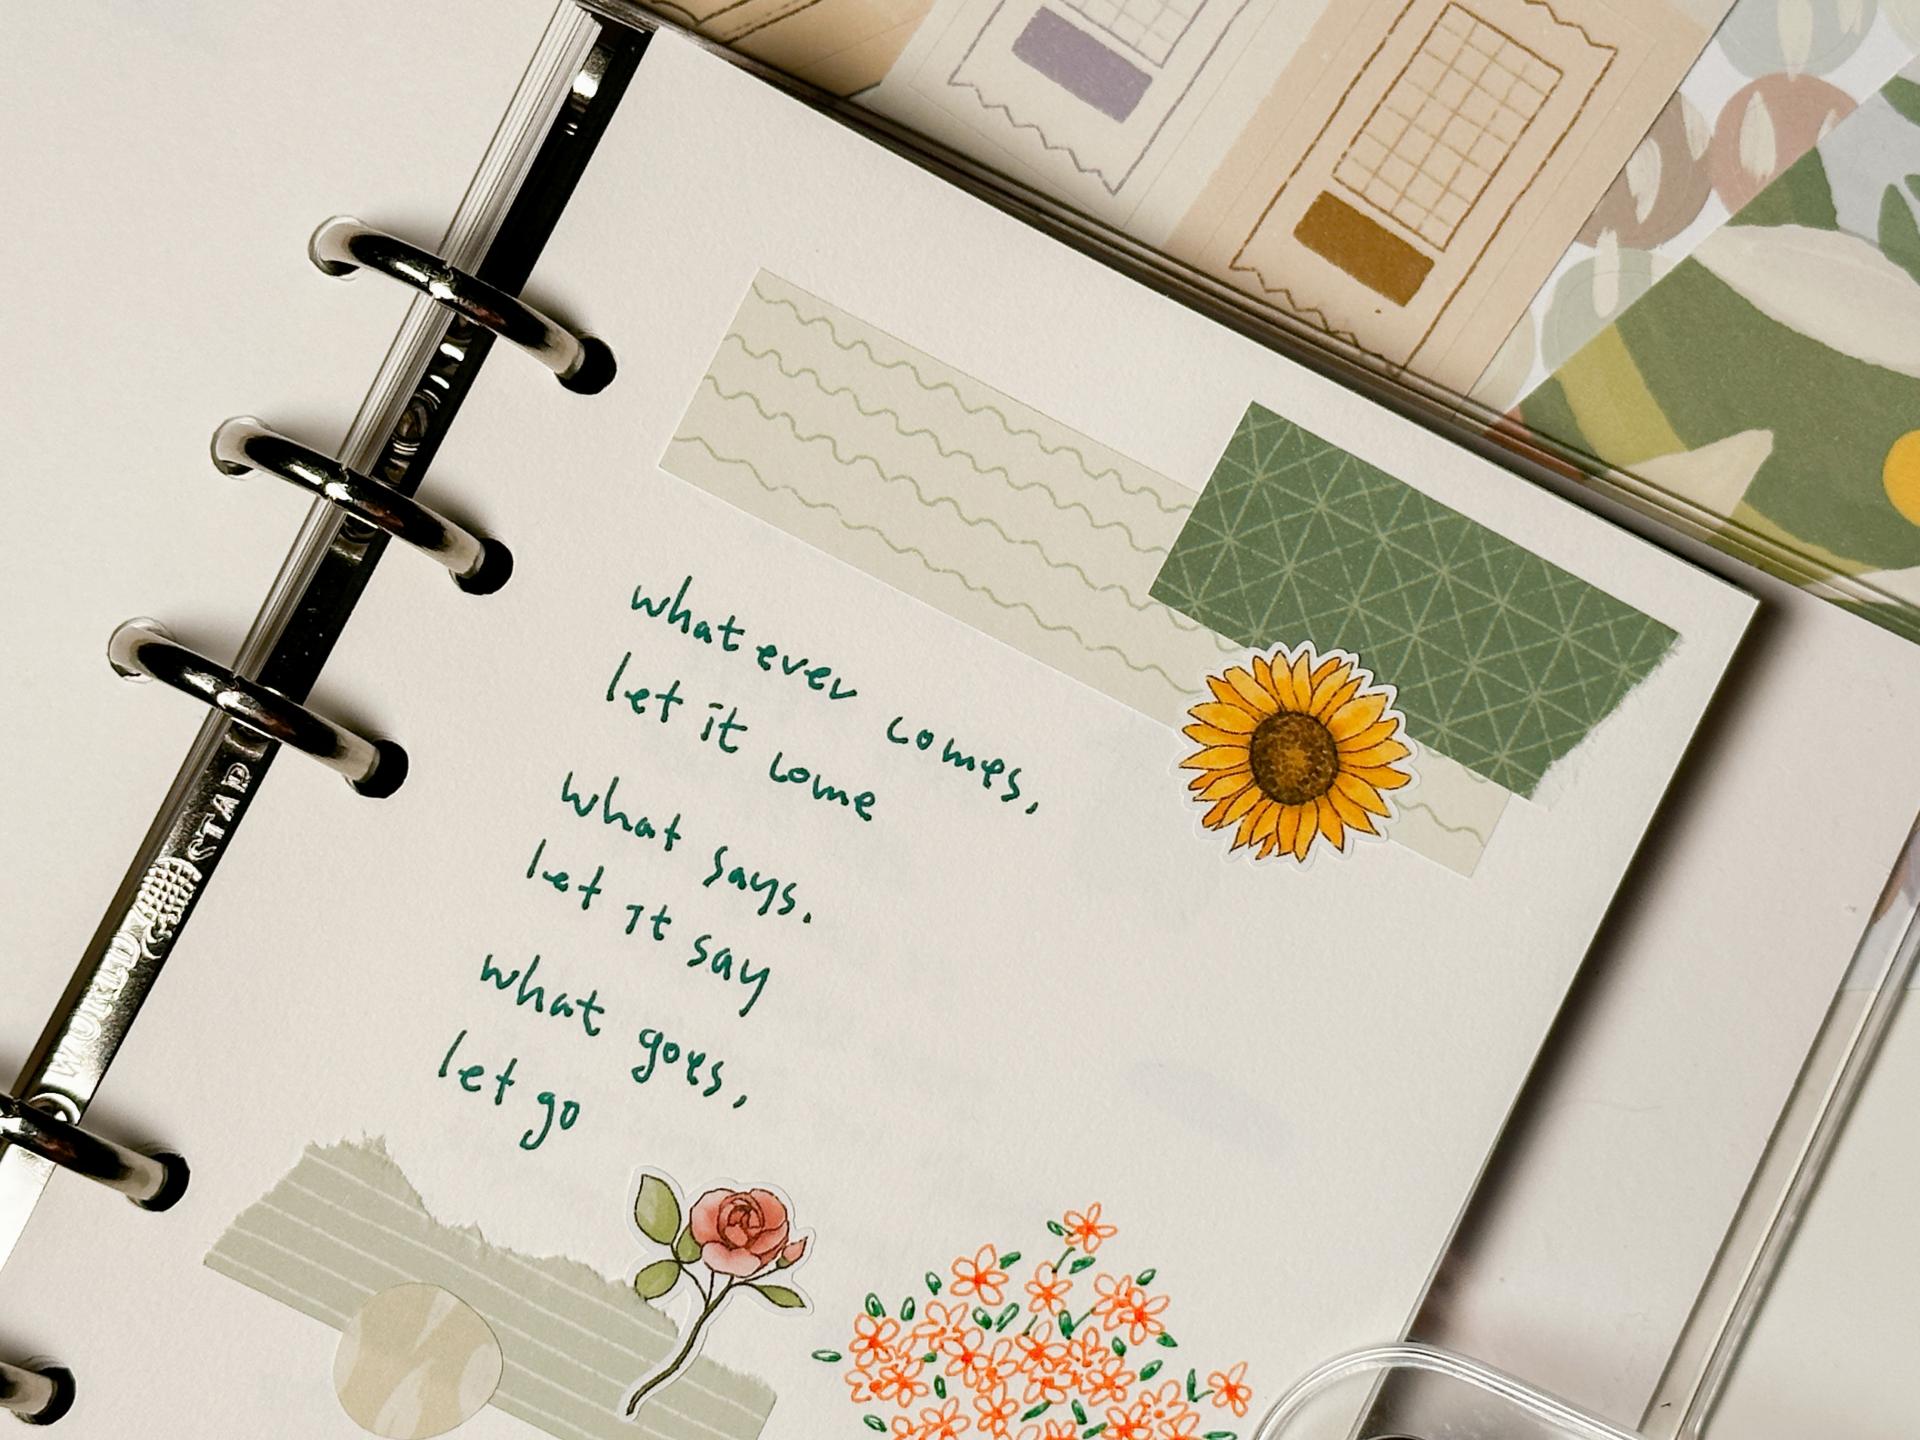 whatever comes,
let it come
what says.
let it say
what goes,
let go
WORLD STAR